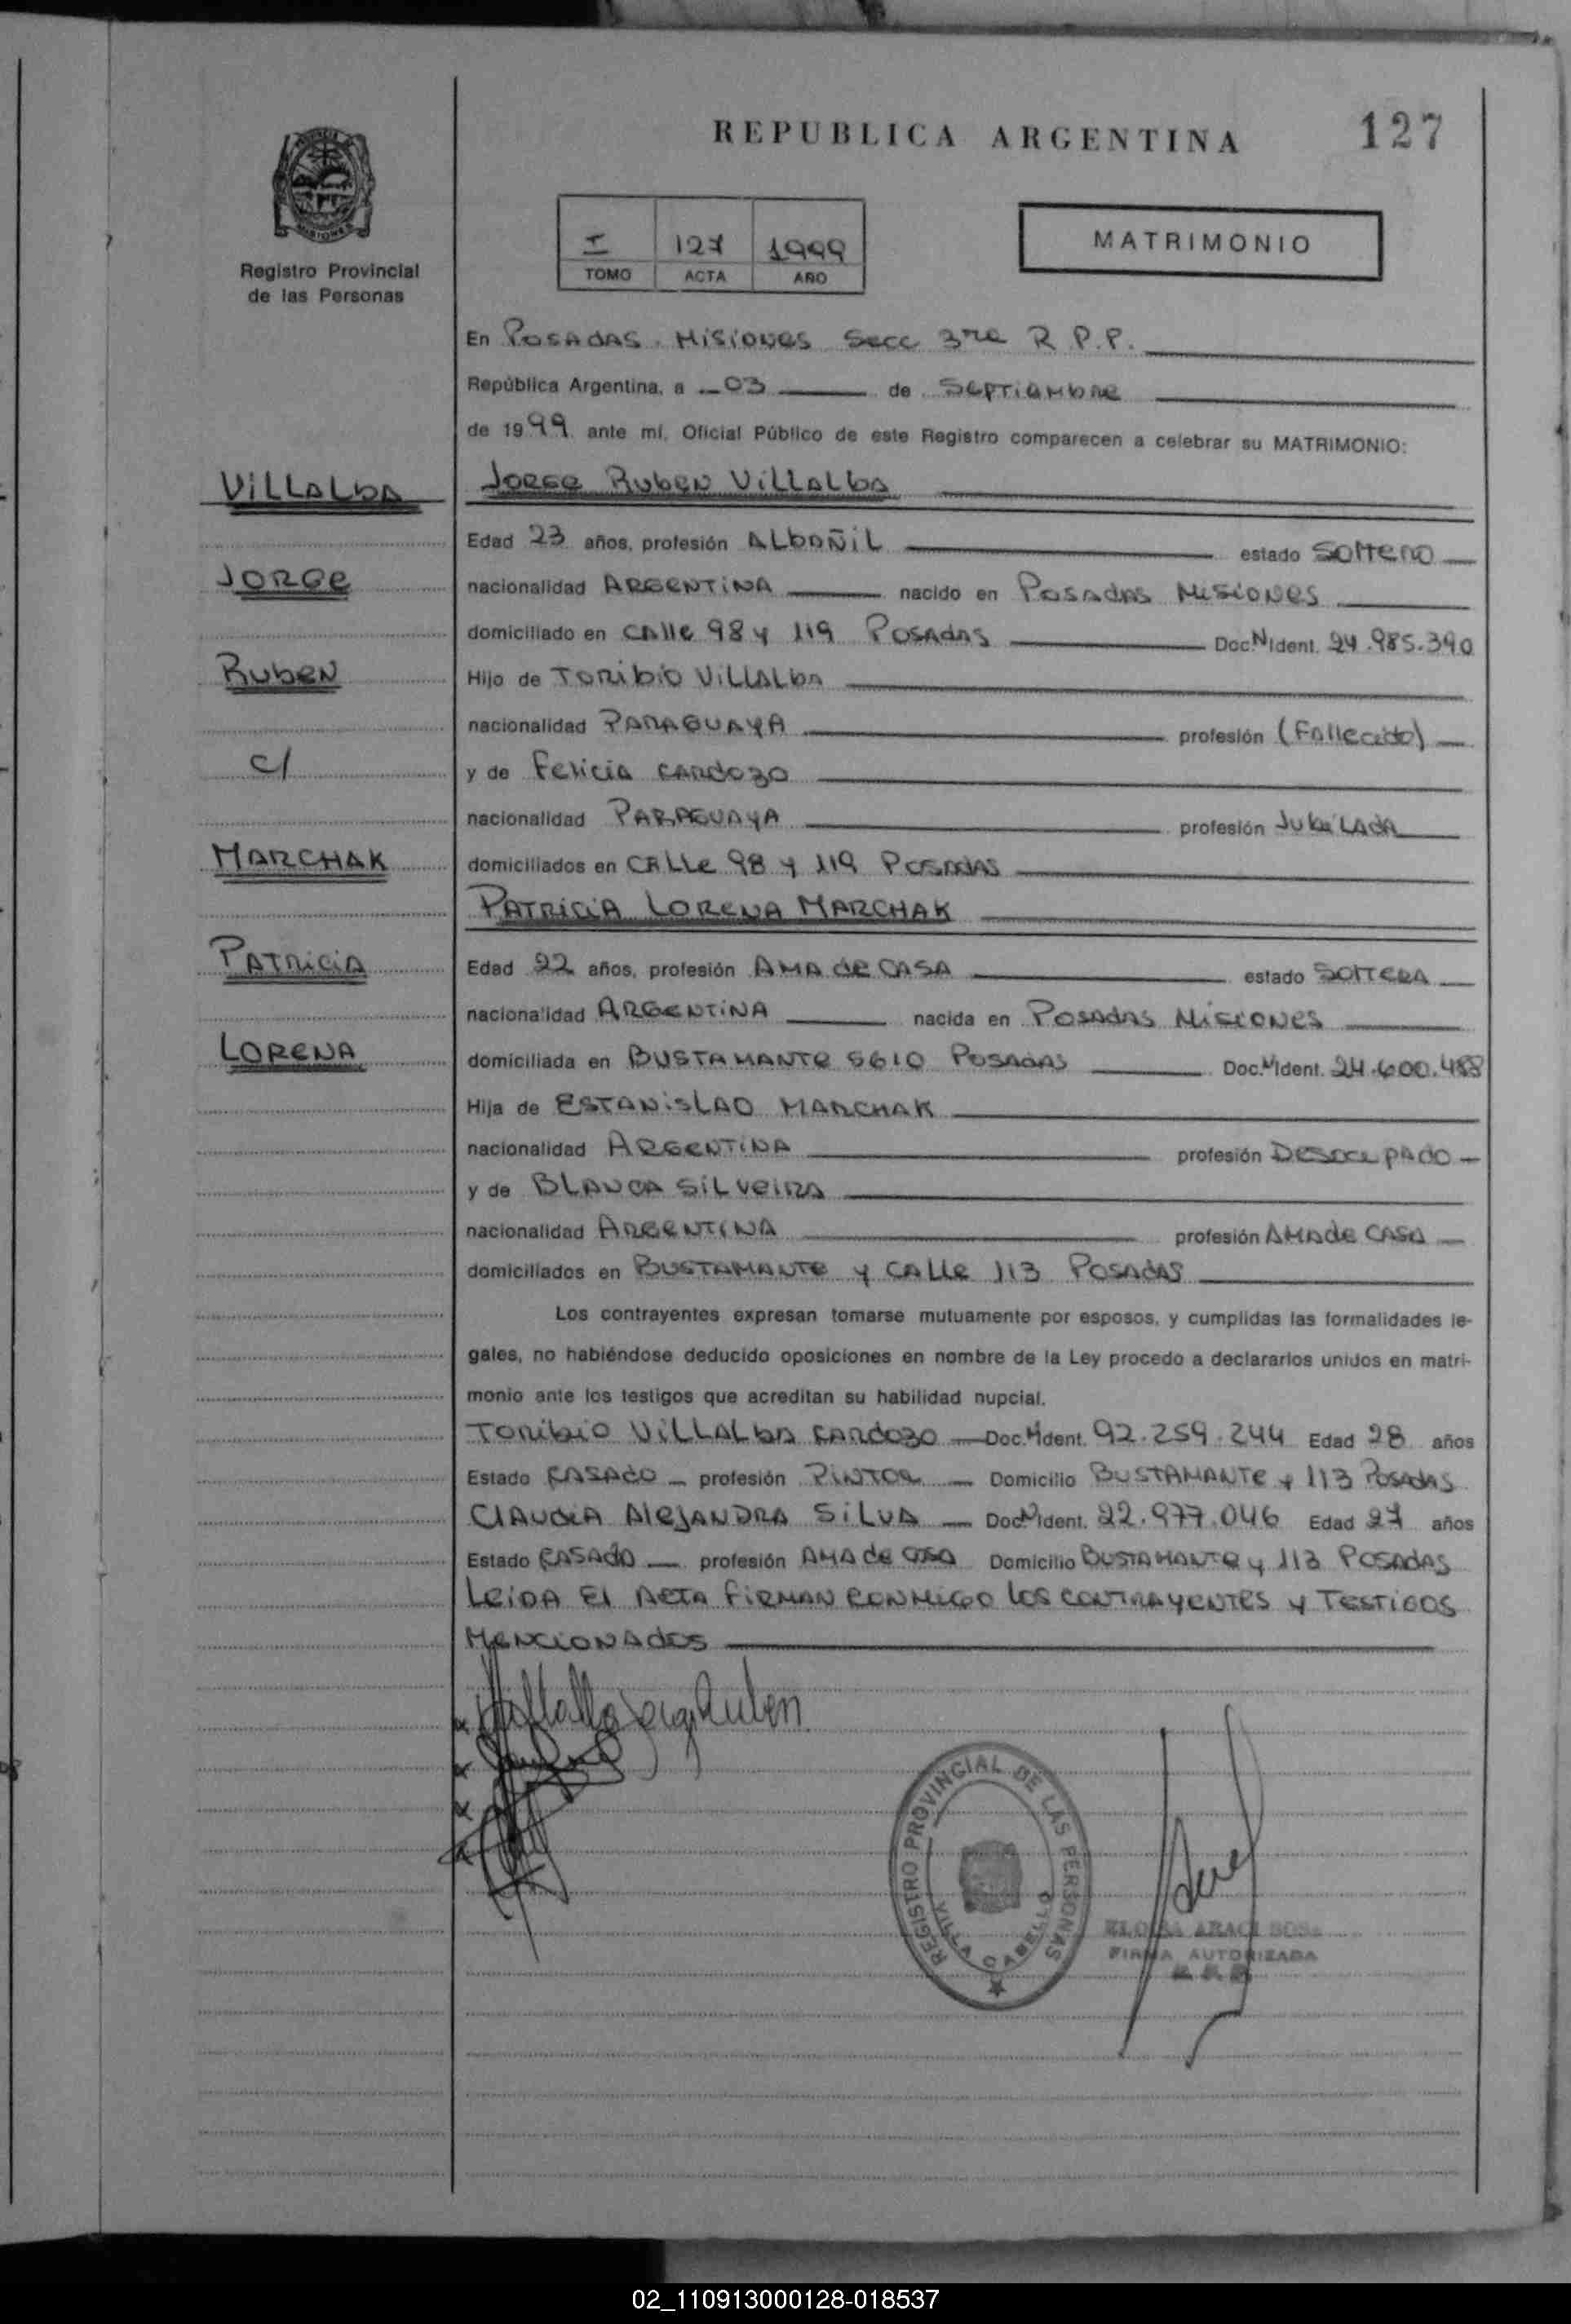 REPUBLICA ARGENTINA
127
PROVINCIA
MISIONES
Registro Provincial
de las Personas
I 127 1999
TOMO ACTA AÑO
MATRIMONIO
En POSADAS. MISIONES Secc 3ra R P.P.
República Argentina, a 03 de SEPTIEMBRE
de 1999. ante mí, Oficial Público de este Registro comparecen a celebrar su MATRIMONIO:
VILLALBA
JORGE RUBEN VILLALBA
Edad 23 años, profesión ALBAÑIL estado SOLTERO
JORGE
nacionalidad ARGENTINA nacido en POSADAS MISIONES
domiciliado en CALLE 98 y 119 POSADAS Doc.N Ident. 24.985.390
RUBEN
Hijo de TORIBIO VILLALBA
nacionalidad PARAGUAYA profesión (FALLECIDO)
C/
y de FELICIA CARDOZO
nacionalidad PARAGUAYA profesión JUBILADA
MARCHAK
domiciliados en CALLE 98 y 119 POSADAS
PATRICIA LORENA MARCHAK
PATRICIA
Edad 22 años, profesión AMA de CASA estado SOLTERA
nacionalidad ARGENTINA nacida en POSADAS MISIONES
LORENA
domiciliada en BUSTAMANTE 5610 POSADAS Doc.N Ident. 24.600.488
Hija de ESTANISLAO MARCHAK
nacionalidad ARGENTINA profesión DESOCUPADO
y de BLANCA SILVEIRA
nacionalidad ARGENTINA profesión AMA de CASA
domiciliados en BUSTAMANTE y CALLE 113 POSADAS
Los contrayentes expresan tomarse mutuamente por esposos, y cumplidas las formalidades le-
gales, no habiéndose deducido oposiciones en nombre de la Ley procedo a declararlos unidos en matri-
monio ante los testigos que acreditan su habilidad nupcial.
TORIBIO VILLALBA CARDOZO Doc.N Ident. 92.259.244 Edad 28 años
Estado CASADO profesión PINTOR Domicilio BUSTAMANTE y 113 POSADAS
CLAUDIA ALEJANDRA SILVA Doc.N Ident. 22.977.046 Edad 27 años
Estado CASADA profesión AMA de CASA Domicilio BUSTAMANTE y 113 POSADAS
LEIDA EL ACTA FIRMAN CONMIGO LOS CONTRAYENTES y TESTIGOS
MENCIONADOS
Villalba Jorge Ruben
REGISTRO PROVINCIAL DE LAS PERSONAS
VILLA CABELLO
ELOISA ARACI SOSA
FIRMA AUTORIZADA
02_110913000128-018537